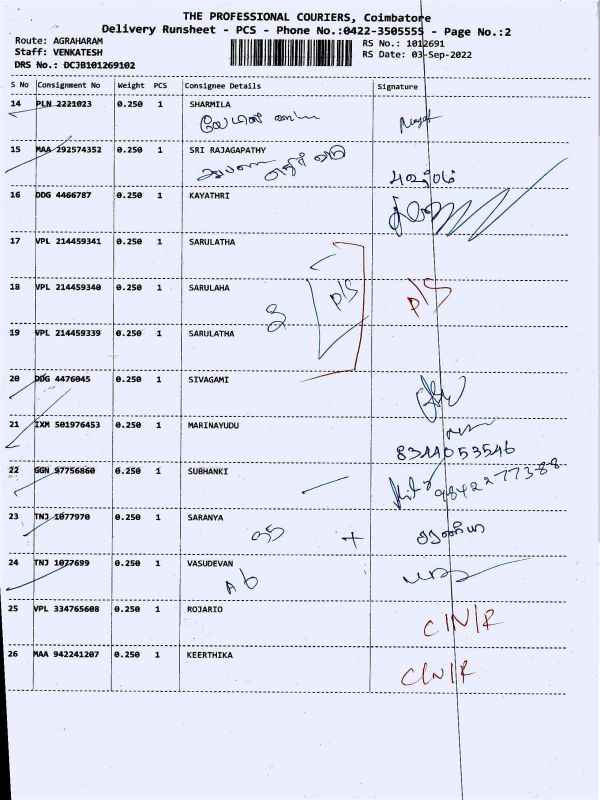 THE PROFESSIONAL COURIERS, Coimbatore
Delivery Runsheet - PCS - Phone No.:0422-3505555 - Page No.:2
Route: AGRAHARAM
RS No.: 1012691
Staff: VENKATESH
RS Date: 03-Sep-2022
DRS No.: DCJB101269102
S No Consignment No Weight PCS Consignee Details Signature
14 PLN 2221023 0.250 1 SHARMILA
15 MAA 292574352 0.250 1 SRI RAJAGAPATHY
16 DDG 4466787 0.250 1 KAYATHRI
17 VPL 214459341 0.250 1 SARULATHA
18 VPL 214459340 0.250 1 SARULAHA
P/S P/S
19 VPL 214459339 0.250 1 SARULATHA
20 DDG 4476045 0.250 1 SIVAGAMI
21 IXM 501976453 0.250 1 MARINAYUDU
8344053546
22 GGN 97756860 0.250 1 SUBHANKI
9842277388
23 TNJ 1077970 0.250 1 SARANYA
சரண்யா
24 TNJ 1077699 0.250 1 VASUDEVAN
Ab
25 VPL 334765608 0.250 1 ROJARIO
C/N/R
26 MAA 942241207 0.250 1 KEERTHIKA
C/N/R